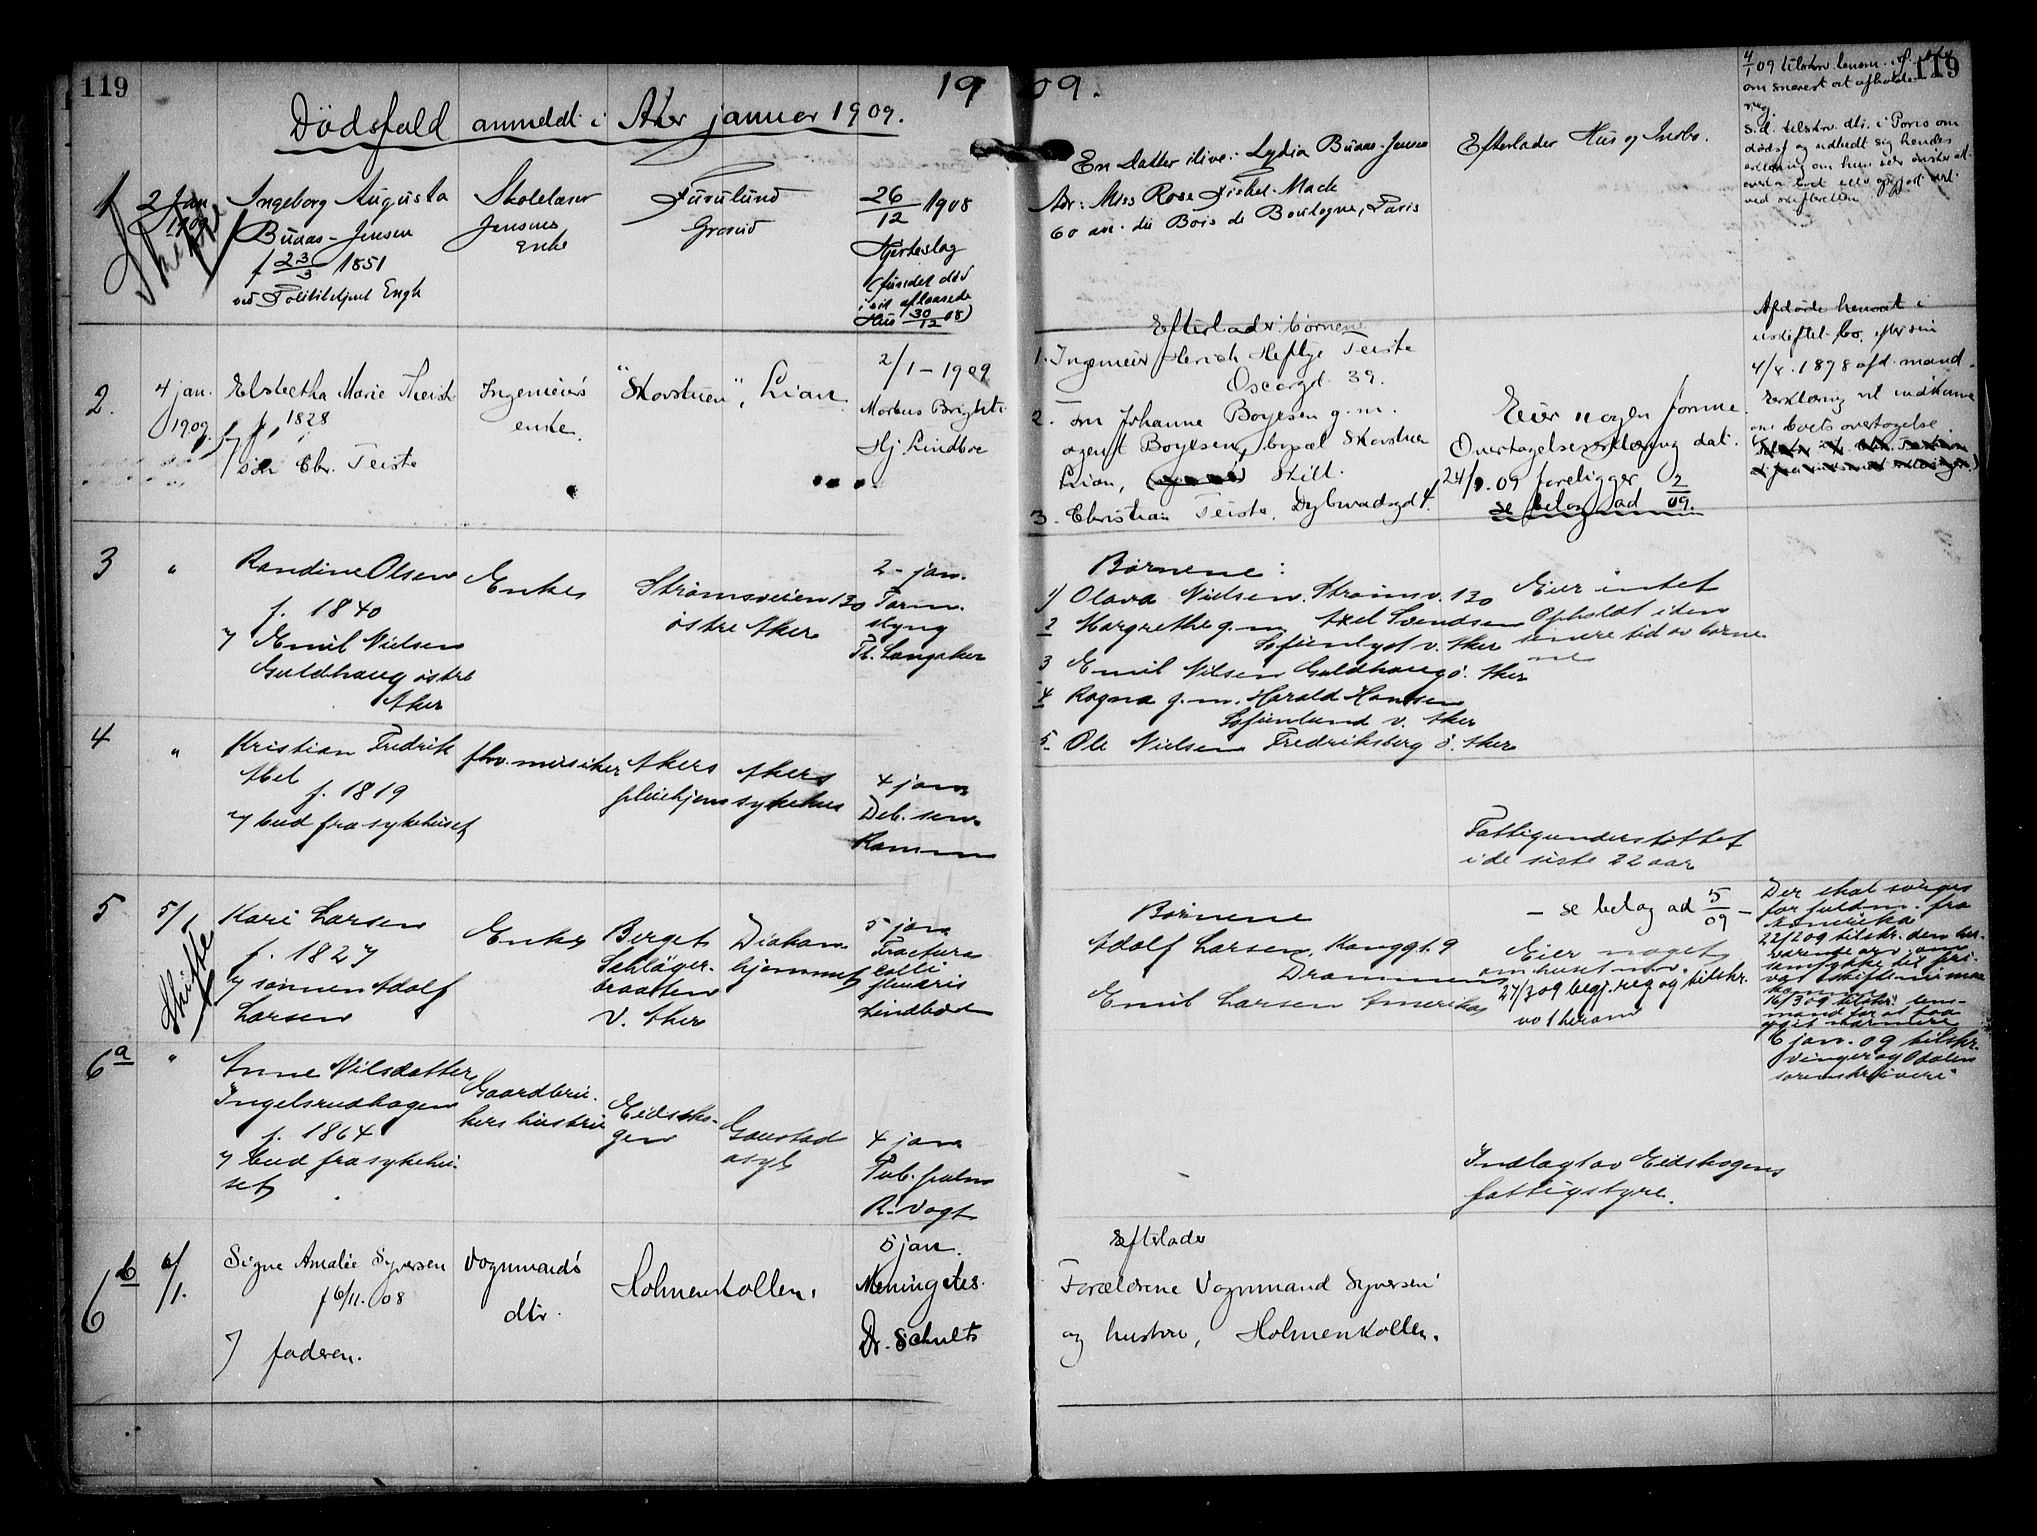 119
1909.
119
Dödsfald anmeldt i Aker januar 1909.
1
2 Jan
1909
Skifte
Ingeborg Augusta
Buaas-Jensen
f 23/3 1851
ved Politibetjent Engh
Skolelærer
Jensens
Enke
Furulund
Grorud
26/12 1908
Hjerteslag
(fundet död
i sit aflaasede
Hus 30/12 08)
En datter ilive: Lydia Buaas-Jensen
Adr: Miss Rose Fishel-Mack
60 av. du Bois de Boulogne, Paris
Efterlader Hus og Indbo.
4/1 09 tilskrev lensm.
om snarest at afholde
reg.
S.d. tilskrv. dtr. i Paris om
dødsf og udbedt sig hendes
erklæring om hun selv ønsker at
overta bod eller opgjort det
ved skifteretten
2.
4 jan.
1909.
Elsbetha Marie Theiste
f. 1828
v/ søn Chr. Teiste
Ingeniørs
enke.
"Skovstuen", Lian
2/1-1909
Morbus Brighti
Hj. Lindboe
Efterlader børnene
1. Ingeniør Henrik Heftye Teiste
Oscarsgd. 39.
2. fru Johanne Boyesen g.m.
agent Boyesen, bopæl Skovstuen
Lian, skilt.
3. Christian Teiste, Dybwadsgd 4.
Eier nogen formue.
Overtagelseserklæring dat.
24/1.09 foreligger
se belag ad 2/09.
Afdøde hensat i
uskiftet bo efter sin
4/4.1878 afd. mand.
Erklæring vil indkomme
om boets overtagelse.
3
"
Randine Olsen
f. 1840
v/ Emil Nielsen
Guldhaug østre
Aker
Enke
Strømsveien 130
østre Aker
2- jan.
Tarm-
slyng
Th. Langaker
Børnene:
1) Olava Nielsen. Strømsv. 130
2 Margrethe g.m. Axel Svendsen
Sofienlyst v. Aker
3 Emil Nilsen Guldhaug ø. Aker
4 Ragna g.m. Harald Hansen
Sofienlund v. Aker
5 Ole Nielsen Fredriksberg ø. Aker
Eier intet
Opholdt i den
senere tid av børne
ne
4
"
Kristian Fredrik
Abel
f. 1819
v/ bud fra sykehuset
fhv. musiker
Akers
pleiehjem
Akers
sykehus
4 jan
Deb. sen.
Ramm
Fattigunderstøttet
i de siste 22 aar
5
5/1
Skifte
Kari Larsen
f. 1827
v/ sønnen Adolf
Larsen
Enke
Berget
Schläger-
braaten
V. Aker
Diakon-
hjemmet
5 jan
Fractura
colli
femoris
Lindboe
Børnene
Adolf Larsen, Konggt. 9
Drammen
Emil Larsen Amerika
- se belag ad 5/09 -
Eier noget
om huset m.v.
27/3 09 begj. reg og tilskr.
Der skal sørges
for fuldm. fra
Amerika
22/2 09 tilskr. den her-
værende arv. om
samtykke til pri-
vat skifte
16/3 09 tilskr. lens-
mand for at faa
6 a
"
Anne Nilsdatter
Ingelsrudhagen
f. 1864
v/ bud fra sykehu-
set
Gaardbru-
kers hustru
Eidsko-
gen
Gaustad
asyl
4 jan
Tub. pulm
R. Vogt
Indlagt av Eidskogens
fattigstyre.
6 jan. 09 tilskr.
Vinger og Odalen
sorenskriveri
6 b
6/1.
Signe Amalie Syversen
f 6/11. 08
v/ faderen.
Vognmands
dtr.
Holmenkollen.
5 jan.
Meningites.
Dr. Schults
Efterlader
Forældrene Vognmand Syversen
og hustru, Holmenkollen.